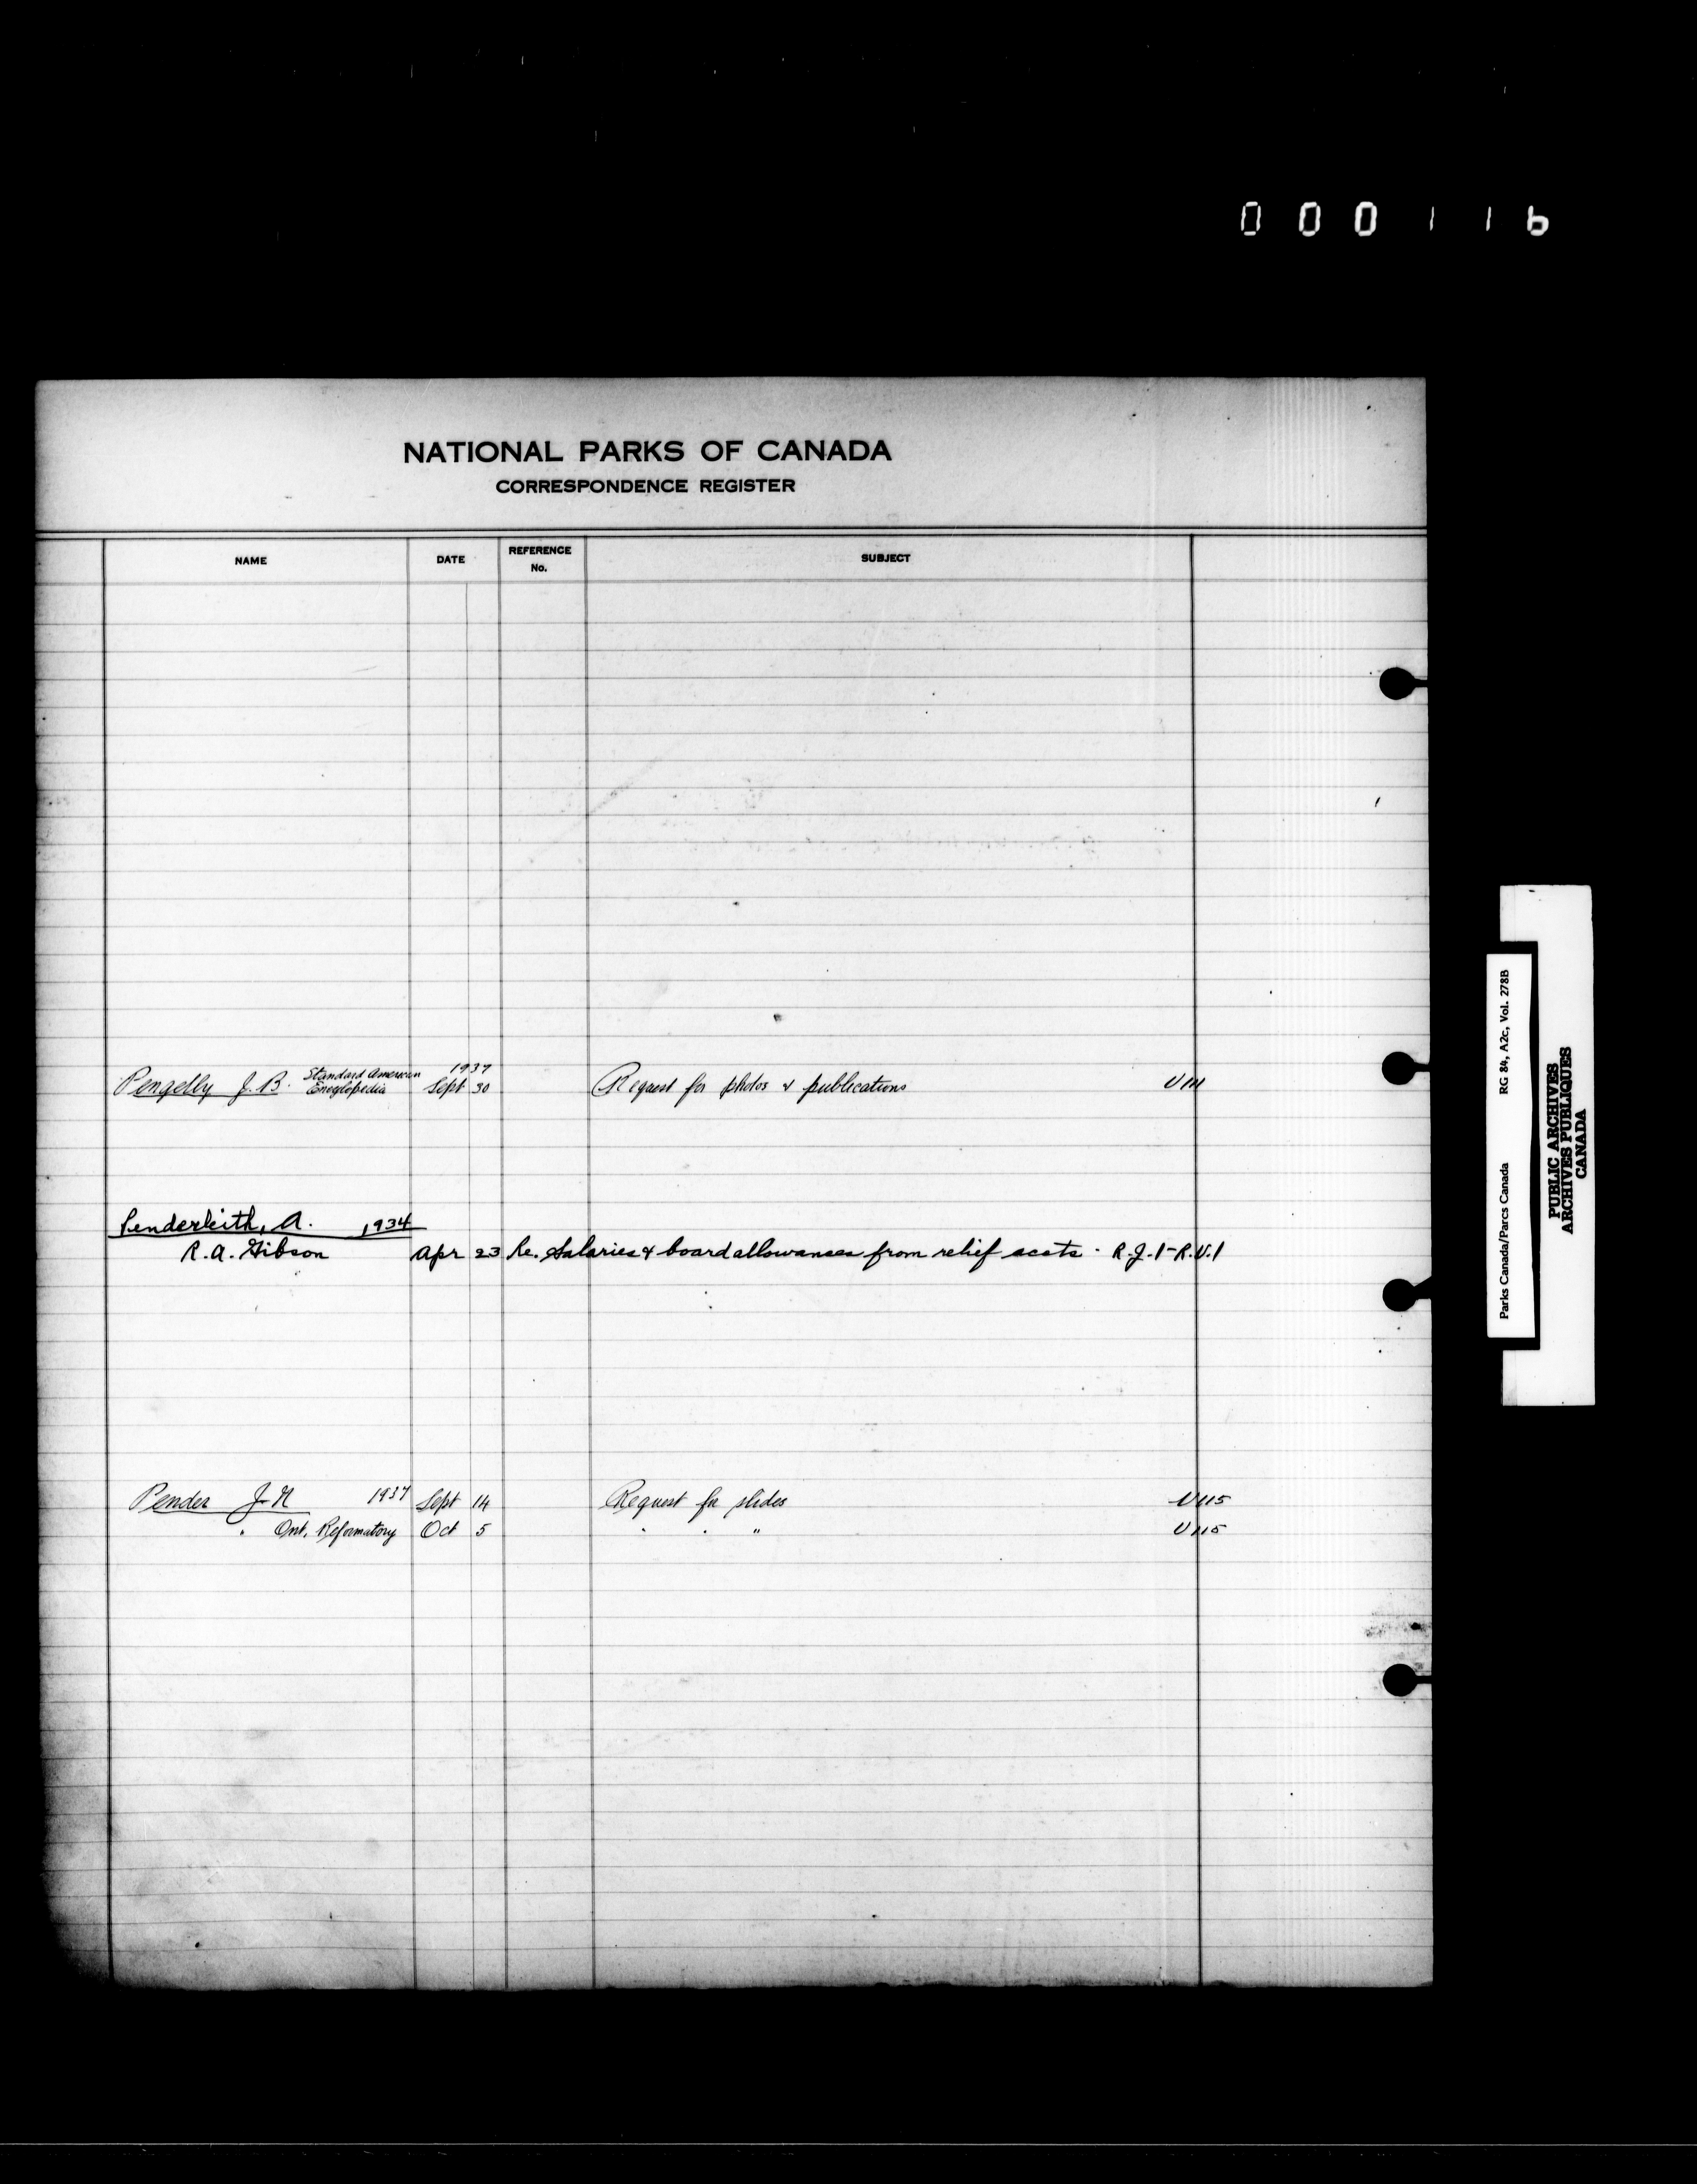 000116
NATIONAL PARKS OF CANADA
CORRESPONDENCE REGISTER
NAME DATE REFERENCE No. SUBJECT
Pengelly J. B. Standard American Encyclopedia 1937 Sept 30 Request for photos & publications U111
Penderleith, A. 1934
R. A. Gibson Apr 23 Re. Salaries & board allowances from relief accts. R.J.1-R.U.1
Pender J N 1937 Sept 14 Request for slides U115
" Ont. Reformatory Oct 5 " " " U115
Parks Canada/Parcs Canada RG 84, A2c, Vol. 278B
PUBLIC ARCHIVES
ARCHIVES PUBLIQUES
CANADA